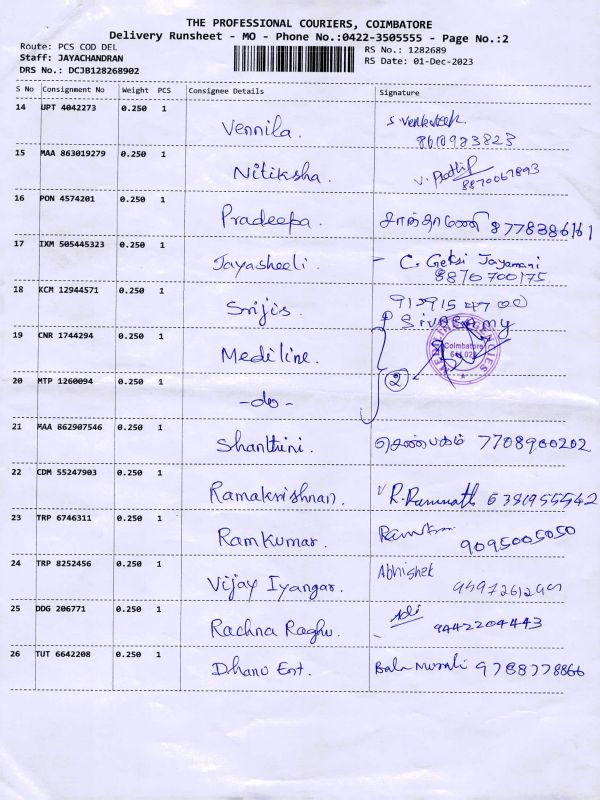 THE PROFESSIONAL COURIERS, COIMBATORE
Delivery Runsheet - MO - Phone No.:0422-3505555 - Page No.:2
Route: PCS COD DEL
Staff: JAYACHANDRAN
DRS No.: DCJB128268902
RS No.: 1282689
RS Date: 01-Dec-2023
S No Consignment No Weight PCS Consignee Details Signature
14 UPT 4042273 0.250 1 Vennila.
15 MAA 863019279 0.250 1 Nitiksha. 8870067893
16 PON 4574201 0.250 1 Pradeepa. 8778386161
17 IXM 505445323 0.250 1 Jayasheeli. - C. Jayamani
8870700175
18 KCM 12944571 0.250 1 Srijis.
P SIVASAMY
19 CNR 1744294 0.250 1 Mediline. Coimbatore
20 MTP 1260094 0.250 1 -do- 2
21 MAA 862907546 0.250 1 Shanthini. செண்பகம் 7708900202
22 CDM 55247903 0.250 1 Ramakrishnan. R. Ramnath
23 TRP 6746311 0.250 1 Ramkumar. 9095005050
24 TRP 8252456 0.250 1 Vijay Iyangar. Abhishek
25 DDG 206771 0.250 1 Rachna Raghu. Adi 9442204443
26 TUT 6642208 0.250 1 Dhanu Ent. Bala Murali 9788778866